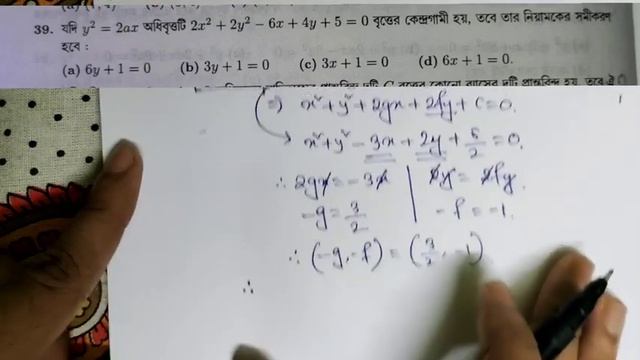 39. যদি y² = 2ax অধিবৃত্তটি 2x² + 2y² − 6x + 4y + 5 = 0 বৃত্তের কেন্দ্রগামী হয়, তবে তার নিয়ামকের সমীকরণ
হবে :
(a) 6y + 1 = 0 (b) 3y + 1 = 0 (c) 3x + 1 = 0 (d) 6x + 1 = 0.
⇒ x² + y² + 2gx + 2fy + c = 0.
→ x² + y² − 3x + 2y + 5/2 = 0.
∴ 2gx = −3x | 2y = 2fy.
−g = 3/2 | −f = −1.
∴ (−g, −f) = (3/2, −1)
∴